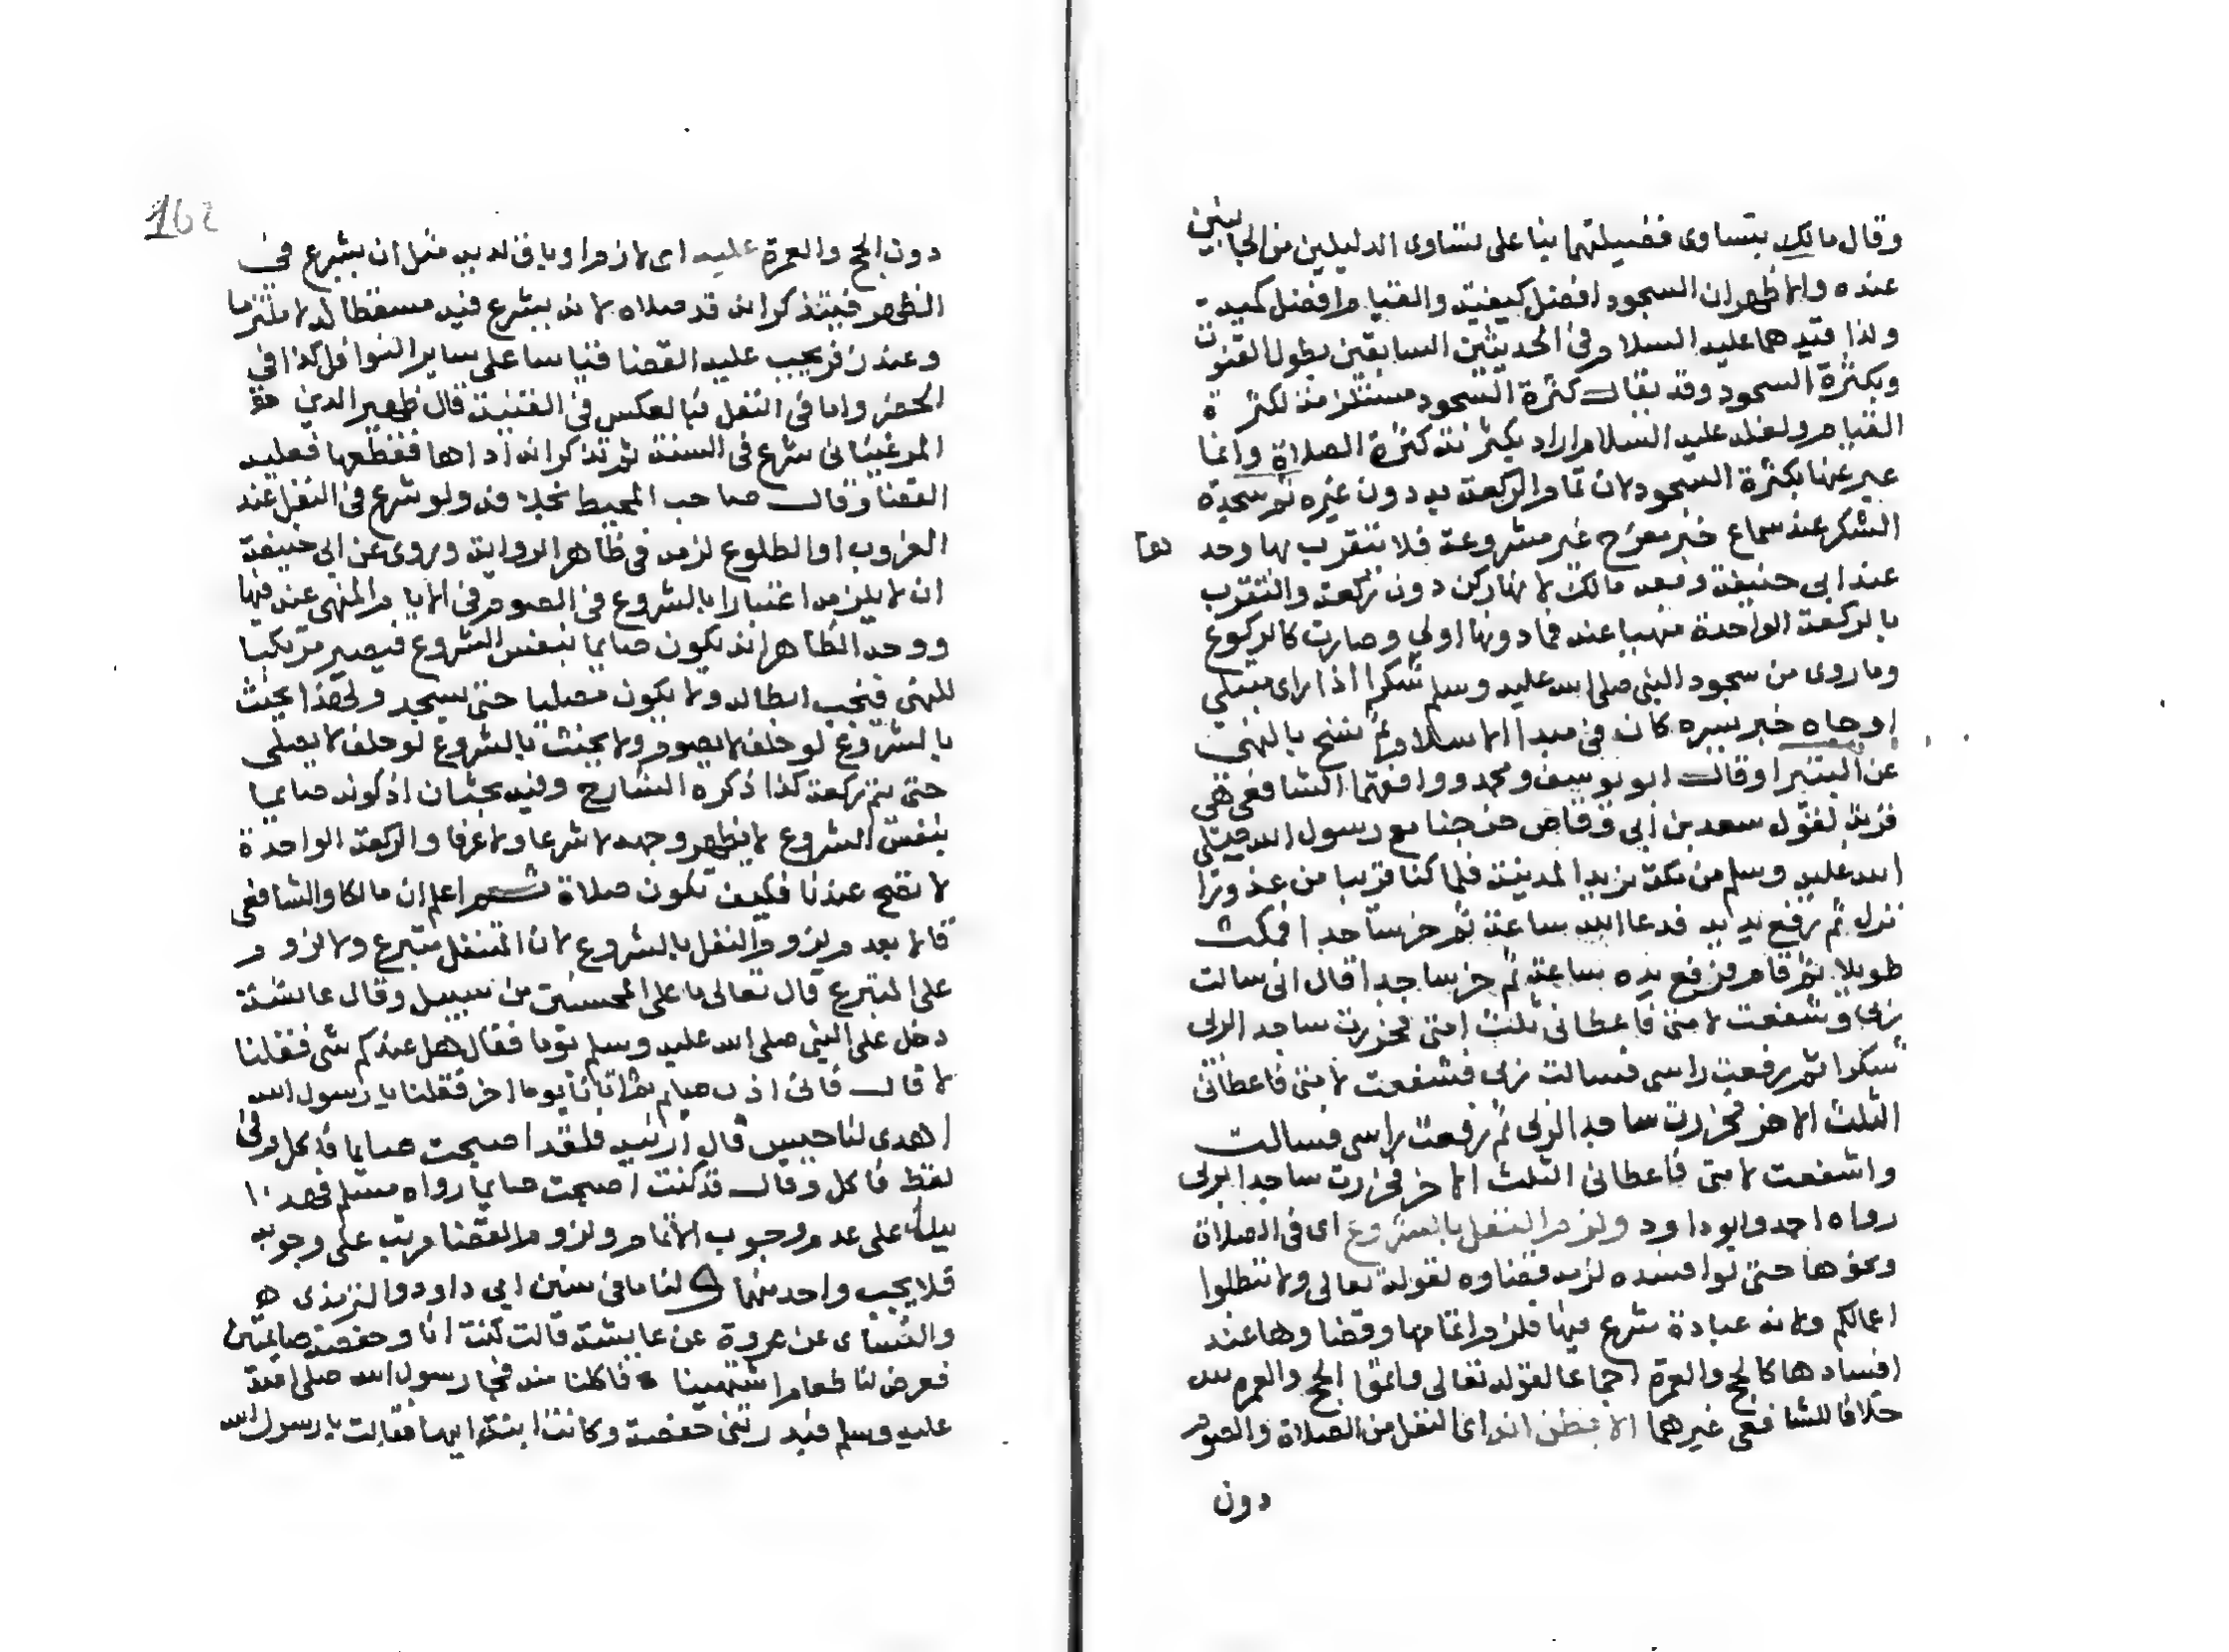 وقال مالك بتساوى فضيلتهما بنا على تساوى الدليلين من الجانبين
عنده والاظهر ان السجود افضل كيفية والقيام افضل كمية
ولذا قيدهما عليه السلام فى الحديثين السابقين بطول القنوت
وبكثرة السجود وقد يقال كثرة السجود مستلزمة لكثرة
القيام ولعله عليه السلام اراد بكثرته كثرة الصلاة وانما
عبر عنها بكثرة السجود لان تمام الركعة به دون غيره ثم سجدة
الشكر عند سماع خبر مفرح غير مشروعة فلا تتقرب بها وحدها
عند ابى حنيفة ومعه مالك لانها ركن دون ركعة والتقرب
بالركعة الواحدة منهيا عنه فما دونها اولى وصارت كالركوع
وما روى من سجود النبى صلى الله عليه وسلم شكرا اذا راى مبتلى
او جاه خبر يسره كان فى مبدا الاسلام ثم نسخ بالنهى
عن البتيرا وقال ابو يوسف ومحمد ووافقهما الشافعى هى
قربة لقول سعد بن ابى وقاص خرجنا مع رسول الله صلى
الله عليه وسلم من مكة نريد المدينة فلما كنا قريبا من عذوزا
نزل ثم رفع يديه فدعا الله ساعة ثم خر ساجدا فمكث
طويلا ثم قام فرفع يده ساعة ثم خر ساجدا قال انى سالت
ربى وشفعت لامتى فاعطانى ثلث امتى فخررت ساجدا لربى
شكرا ثم رفعت راسى فسالت ربى فشفعت لامتى فاعطانى
الثلث الاخر فخررت ساجدا لربى ثم رفعت راسى فسالت
واشفعت لامتى فاعطانى الثلث الاخر فخررت ساجدا لربى
رواه احمد وابو داود ولزم النفل بالشروع اى فى الصلاة
ونحوها حتى لو افسده لزمه قضاوه لقوله تعالى ولا تبطلوا
اعمالكم ولانه عبادة شرع فيها فلزم اتمامها وقضاوها عند
افسادها كالحج والعمرة اجماعا لقوله تعالى واتموا الحج والعمرة لله
خلافا للشافعى غيرهما الا بظن انه اى النفل من الصلاة والصوم
دون
162
دون الحج والعمرة عليه اى لازم او باق لديه مثل ان يشرع فى
الظهر فيتذكر انه قد صلاه لانه يشرع فيه مسقطا له لا ملتزما
وعند زفر يجب عليه القضا قياسا على ساير النوافل كذا فى
الحصر واما فى النفل فبالعكس فى القنية قال ظهير الدين
المرغينانى شرع فى السنة ثم تذكر انه اداها فقطعها فعليه
القضا وقال صاحب المحيط بخلافه ولو شرع فى النفل عند
الغروب او الطلوع لزمه فى ظاهر الرواية وروى عن ابى حنيفة
ان لا يلزمه اعتبارا بالشروع فى الصوم فى الايام المنهى عنه فيها
ووجه الظاهر انه يكون صايما بنفس الشروع فيصير مرتكبا
للنهى فيجب ابطاله ولا يكون مصليا حتى يسجد ولهذا يحنث
بالشروع لو حلف لا يصوم ولا يحنث بالشروع لو حلف لا يصلى
حتى يتم ركعة كذا ذكره الشارح وفيه بحثان اذ كونه صايما
بنفس الشروع لا يظهر وجهه لا شرعا ولا عرفا والركعة الواحدة
لا تصح عندنا فكيف تكون صلاة ثم اعلم ان مالكا والشافعى
قالا بعدم لزوم النفل بالشروع لان المتنفل متبرع ولا لزوم
على المتبرع قال تعالى ما على المحسنين من سبيل وقال عائشة
دخل على النبى صلى الله عليه وسلم يوما فقال هل عندكم شى فقلنا
لا قال فانى اذن صايم ثم اتانا يوما اخر فقلنا يا رسول الله
اهدى لنا حيس قال ارنيه فلقد اصبحت صايما فاكل وفى
لفظ فاكل وقال قد كنت اصبحت صايما رواه مسلم فهذا
يدل على عدم وجوب الاتمام ولزوم القضا مرتب على وجوبه
فلا يجب واحد منهما و لنا ما فى سنن ابى داود والترمذى
والنساى عن عروة عن عايشة قالت كنت انا وحفصة صايمتين
فعرض لنا طعام اشتهيناه فاكلنا منه فجا رسول الله صلى الله
عليه وسلم فبدرتنى حفصة وكانت ابنة ابيها فقالت يا رسول الله